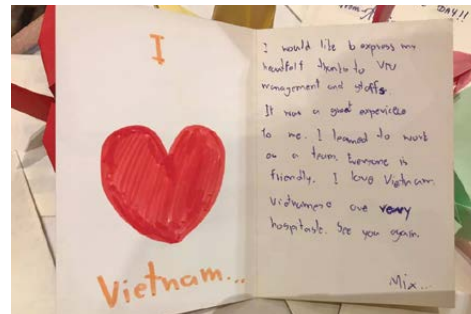 I
Vietnam...
I would like to express my
heartfelt thanks to VTU
management and staffs.
It was a good experience
to me. I learned to work
as a team. Everyone is
friendly. I love Vietnam.
Vietnamese are very
hospitable. See you again.
Mix...
DAY!!